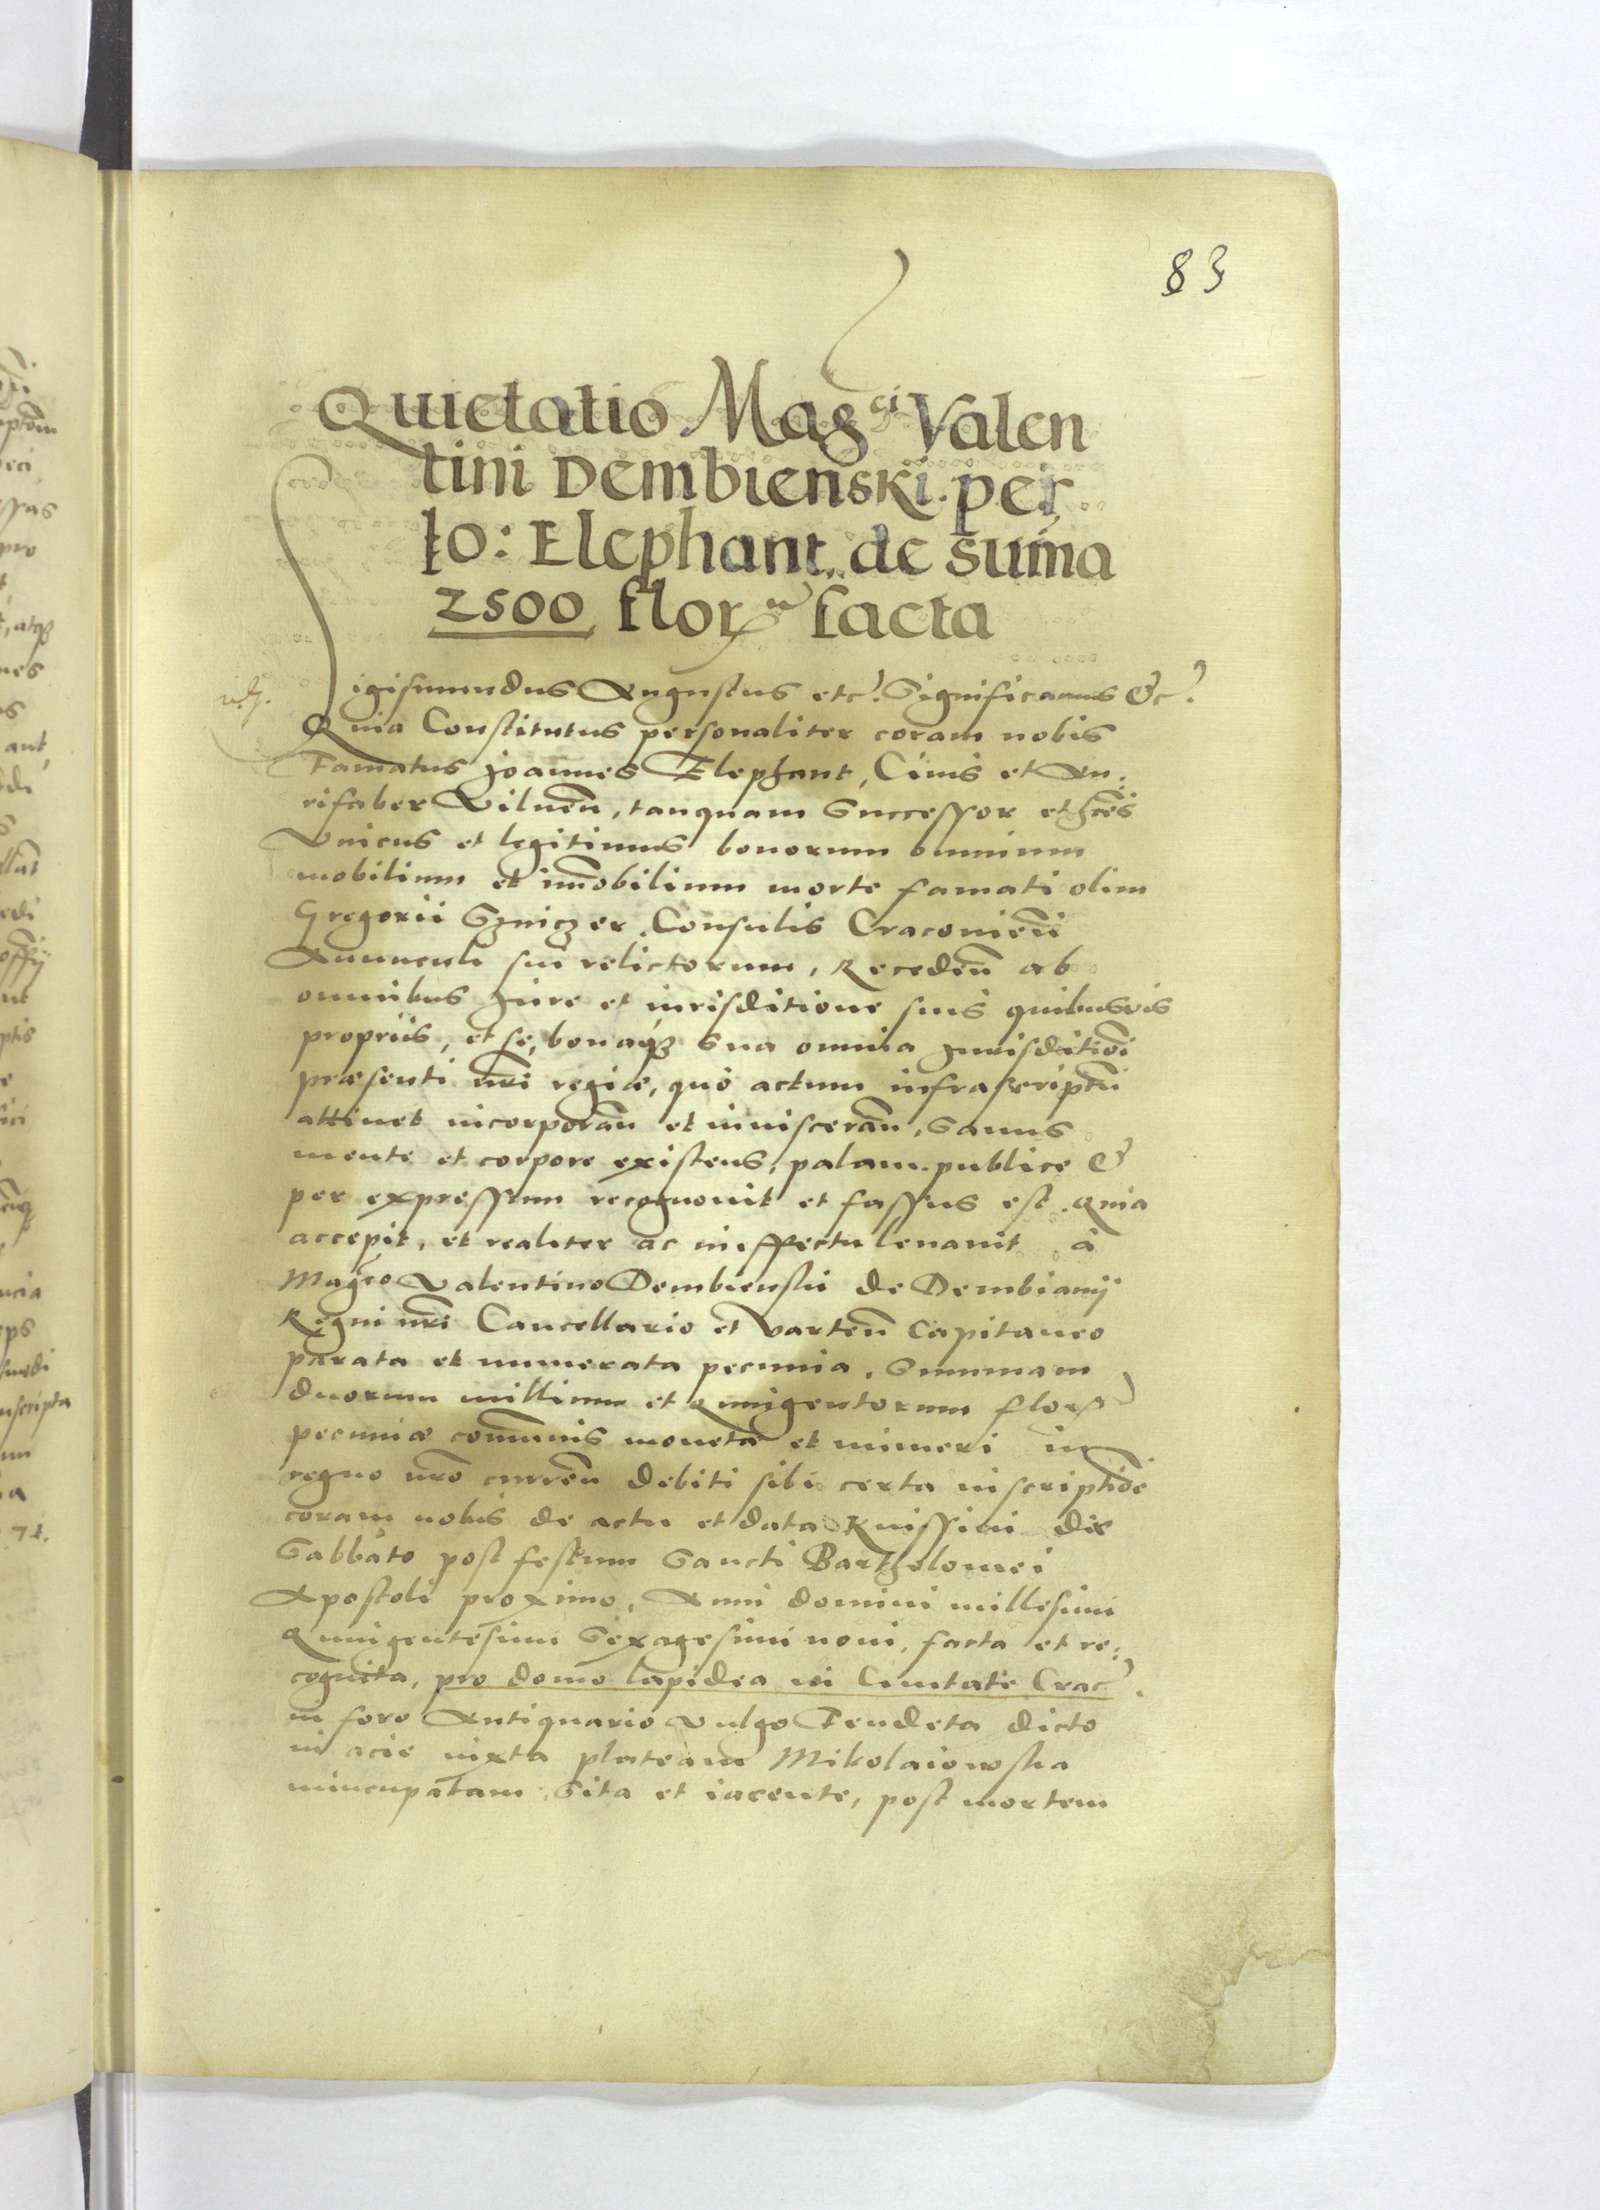 83
Quietatio Mag^ci Valen
tini Dembienski. per
Io: Elephant. de sum̃a
2500 flor^um facta
Sigismundus Augustus etc. Significamus &c.
Quia Constitutus personaliter coram nobis
Famatus Joannes Elephant, Ciuis et Au,,
rifaber Vilneñ, tanquam Successor et hæres
Vnicus et legitimus bonorum omnium
mobilium et im̃obilium morte famati olim
Gregorii Czniczer Consulis Cracouieñ
Auunculi sui relictorum, Recedeñ ab
omnibus Jure et iurisditione suis quibusuis
propriis, et se, bonaqz sua omnia Jurisditioñi
præsenti nr̃i regiæ, quo actum infrascriptũ
attinet incorporañ et inuiscerañ, Sanus
mente et corpore existens, palam publice &
per expressum recognouit et fassus est. Quia
accepit, et realiter ac in effectu leuauit à
Mag^co Valentino Dembienski de Dembianÿ
Regni nr̃i Cancellario et Varteñ Capitaneo
parata et numerata pecunia, Summam
duorum millium et Quingentorum flor
pecuniæ com̃unis monetæ et numeri in
regno nr̃o curreñ debiti sibi certa inscriptiõe
coram nobis de actu et data Knissini die
Sabbato post festum Sancti Bartholomei
Apostoli proximo, Anni domini millesimi
Quingentesimi Sexagesimi noni, facta et re,,
cognita, pro domo lapidea in Ciuitate Crac.
in foro Antiquario Vulgo Tendeta dicto
in acie iuxta plateam Mikolaiowska
nuncupatam, Sita et iacente, post mortem